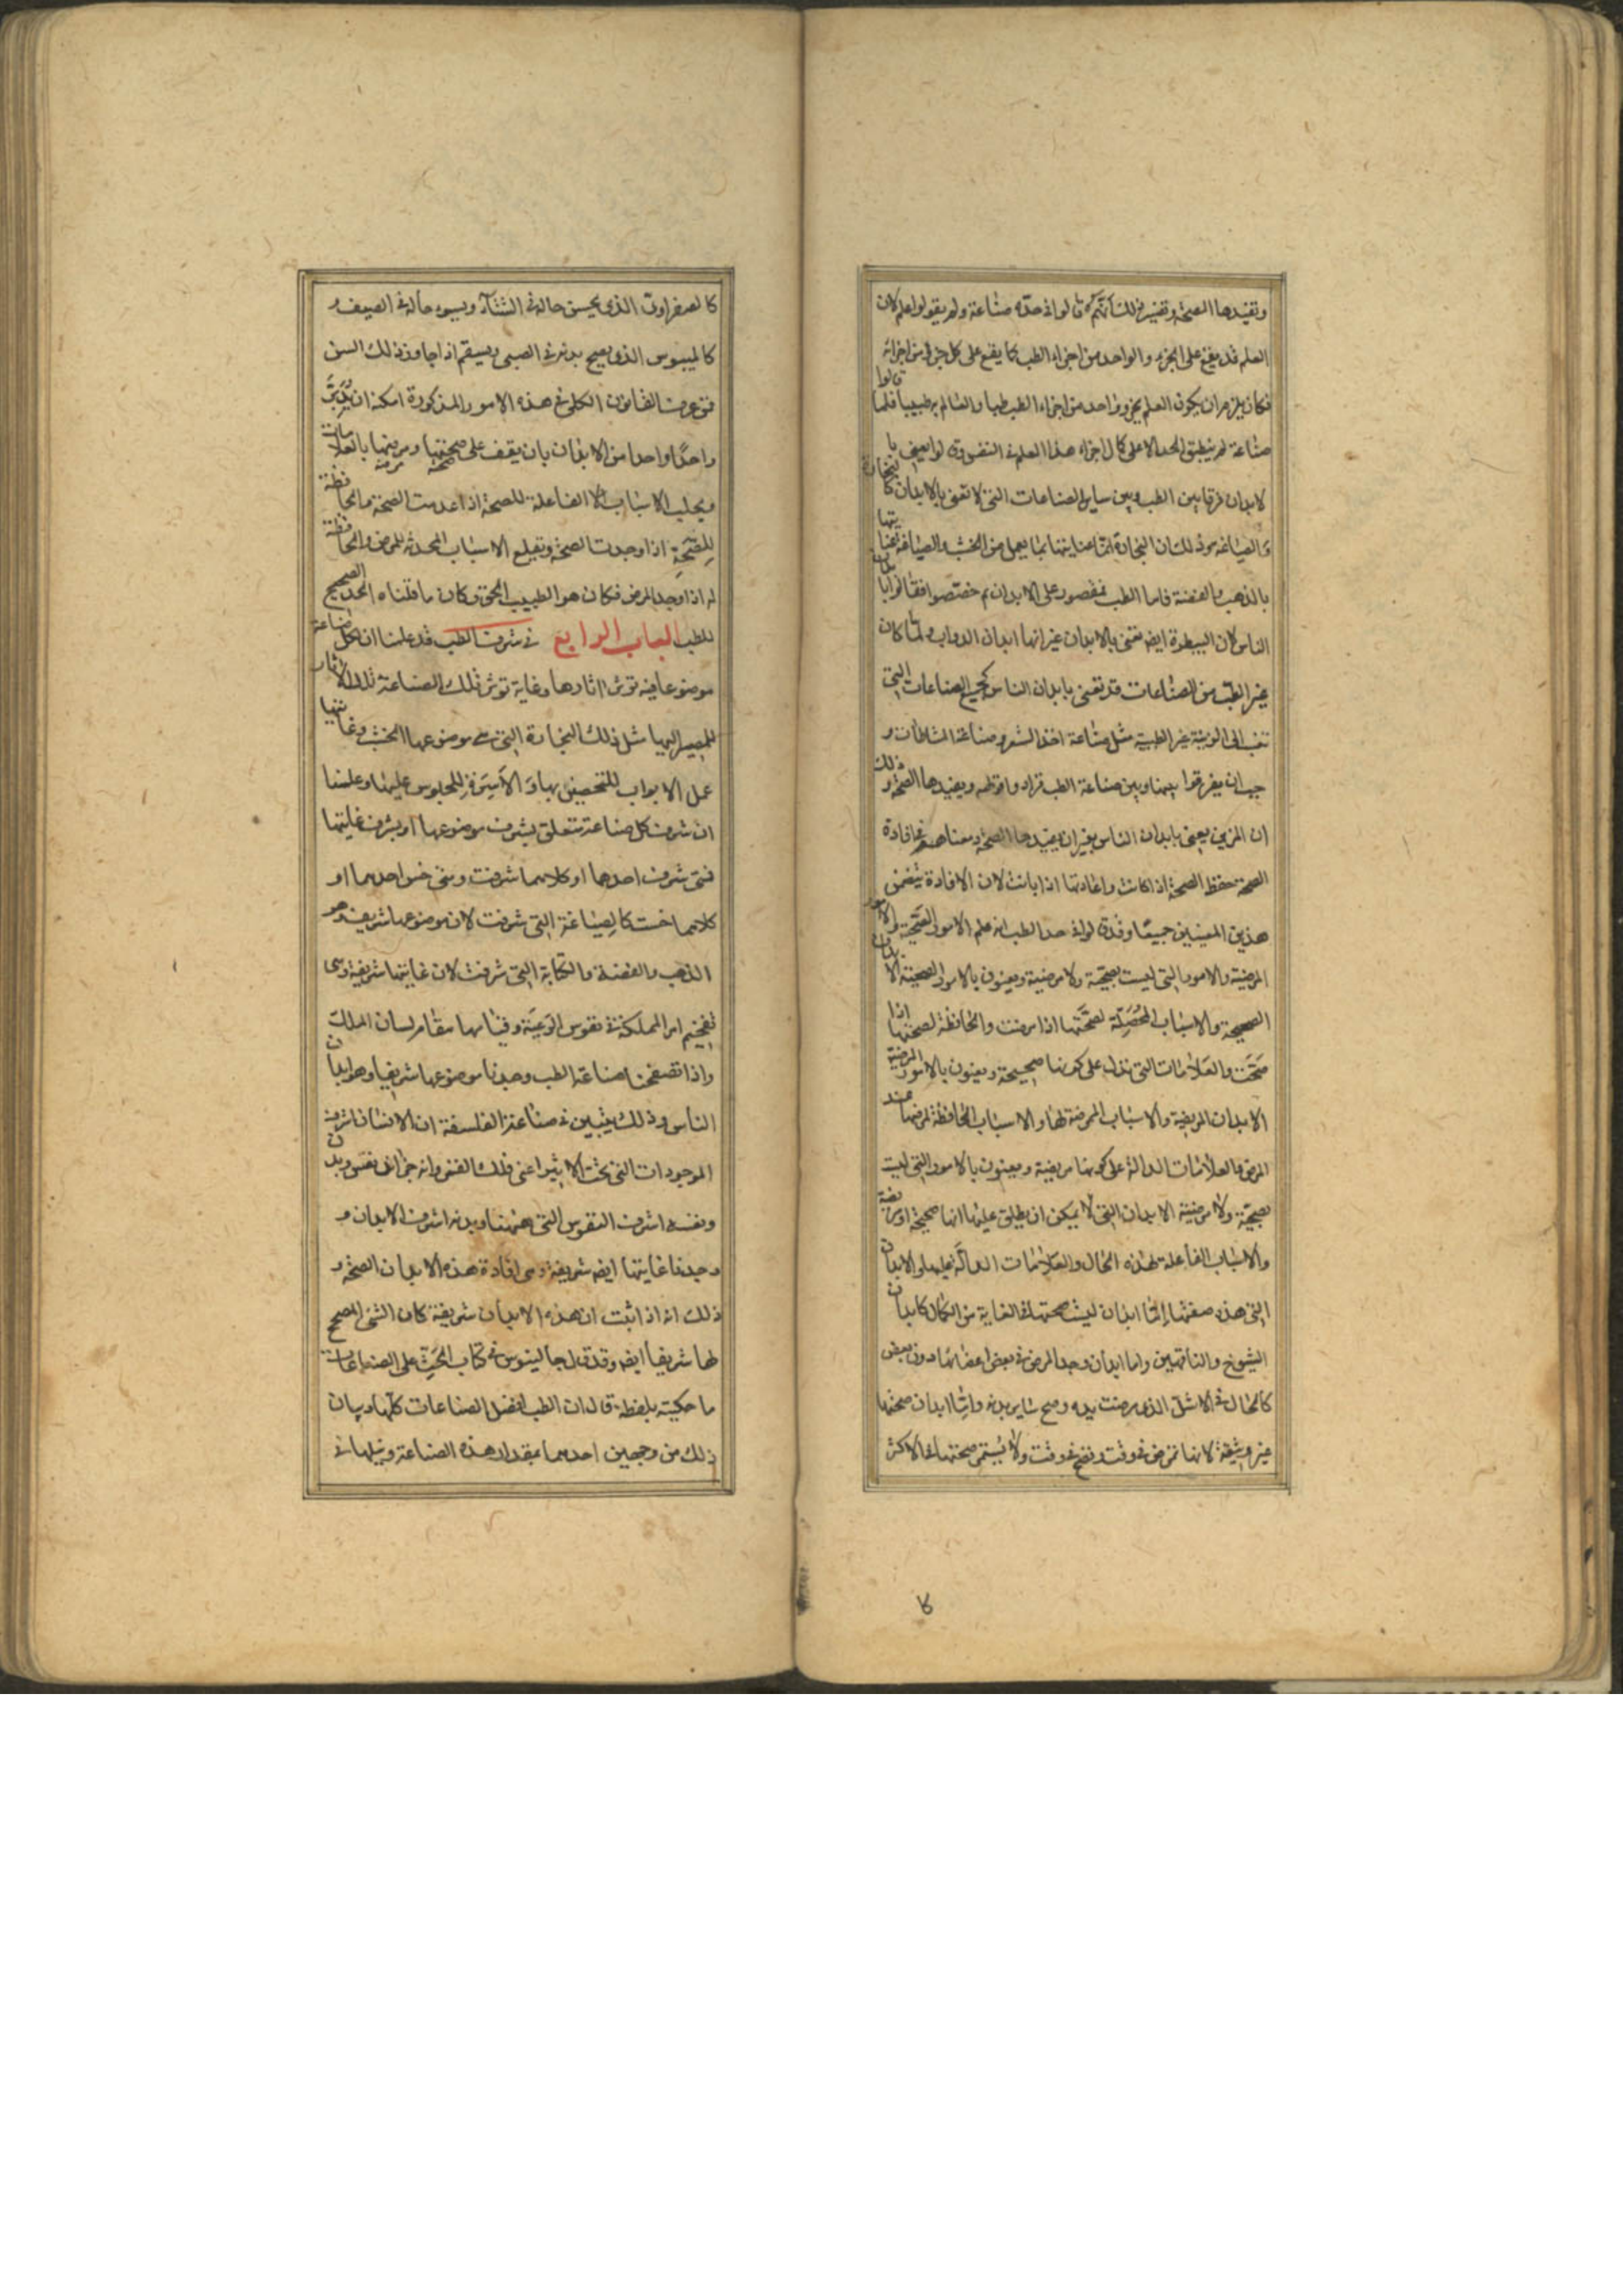 وتفيدها الصحة وتفسير ذلك انهم قالوا في حده صناعة ولم يقولوا علم لان
العلم قد يقع على الجزء والواحد من اجزاء الطب كما يقع على كل جزء من اجزائه
فكان يلزم ان يكون العلم بجزو واحد من اجزاء الطب طبا والعالم به طبيبا فلما قالوا
صناعة لم ينطبق الحد الا على كمال اجزاء هذا العلم في النفس وقالوا يعنى با
لابدان فرقا بين الطب وبين ساير الصناعات التي لا تعنى بالابدان كالنجارة
والصياغة وذلك ان النجارة انما عنايتها بما يعمل من الخشب والصياغة عنايتها
بالذهب والفضة فاما الطب فمقصور على الابدان ثم خصصوا فقالوا بابدان
الناس لان البيطرة ايضا تعنى بالابدان غير انها ابدان الدواب ولما كان
غير الطب من الصناعات قد تعنى بابدان الناس كجميع الصناعات التي
تنسب الى الزينة غير الطبية مثل صناعة اخذ الشعر وصناعة المشاطات و
جب ان يفرقوا بينها وبين صناعة الطب فزادوا قولهم ويفيدها الصحة وذلك
ان المزين يعنى بابدان الناس بغير ان يفيدها الصحة ومعناهم في افادة
الصحة حفظ الصحة اذا كانت واعادتها اذا بانت لان الافادة تتضمن
هذين المعنيين جميعا وقد قالوا في حد الطب انه علم الامور الصحية والامور
المرضية والامور التي ليست بصحية ولا مرضية ويعنون بالامور الصحية الابدان
الصحيحة والاسباب المحصلة لصحتها اذا مرضت والحافظة لصحتها اذا
صحت والعلامات التي تدل على كونها صحيحة ويعنون بالامور المرضية
الابدان المريضة والاسباب الممرضة لها والاسباب الحافظة لمرضها عند
المرض والعلامات الدالة على كونها مريضة ويعنون بالامور التي ليست
بصحية ولا مرضية الابدان التي لا يمكن ان يطلق عليها انها صحيحة او مريضة
والاسباب الفاعلة لهذه الحال والعلامات الدالة عليها والابدان
التي هذه صفتها اما ابدان ليست صحتها في الغاية من الكمال كابدان
الشيوخ والناقهين واما ابدان وجد المرض في بعض اعضائها دون بعض
كالحال في الاشل الذي مرضت يده وصح ساير بدنه واما ابدان صحتها
غير وثيقة لانها تمرض في وقت وتصح في وقت ولا يستمر صحتها في الاكثر
كالصفراوى الذى يحسن حاله في الشتاء ويسوء حاله في الصيف و
كالميبوس الذى يصح بدنه في الصبى ويسقم اذا جاوز ذلك السن
فمن عرف القانون الكلى في هذه الامور المذكورة امكنه ان يدبر
واحدا واحدا من الابدان بان يقف على صحتها ومرضها بالعلامات
ويجلب الاسباب الفاعلة للصحة اذا عدمت الصحة والحافظة
للصحة اذا وجدت الصحة ويقلع الاسباب المحدثة للمرض والحافظة
له اذا وجد المرض فكان هو الطبيب الحق وكان ما قلناه الحد الصحيح
للطب الباب الرابع في شرف الطب قد علمنا ان لكل صناعة
موضوعا فيه تؤثر اثارها وغاية تؤثر تلك الصناعة تلك الاثار
للمصير اليها مثل ذلك النجارة التي موضوعها الخشب وغايتها
عمل الابواب للتحصين بها والاسرة للجلوس عليها وعلمنا
ان شرف كل صناعة متعلق بشرف موضوعها او بشرف غايتها
فمتى شرف احدها او كلاهما شرفت ومتى خس احدهما او
كلاهما خست كالصياغة التي شرفت لان موضوعها شريف وهو
الذهب والفضة والكتابة التي شرفت لان غايتها شريفة وهى
تفخيم امر المملكة في نفوس الرعية وقيامها مقام لسان الملك
واذا تصفحنا صناعة الطب وجدنا موضوعها شريفا وهو ابدان
الناس وذلك يتبين في صناعة الفلسفة ان الانسان اشرف
الموجودات التي تحت الاثير اعنى فلك القمر وانه جزآن نفس وبدن
ونفسه اشرف النفوس التي ههنا وبدنه اشرف الابدان و
وجدنا غايتها ايضا شريفة وهى افادة هذه الابدان الصحة و
ذلك انه اذا ثبت ان هذه الابدان شريفة كان الشى المصحح
لها شريفا ايضا وقد قال جالينوس في كتاب الحث على الصناعات
ما حكيته بلفظه قال ان الطب افضل الصناعات كلها وبيان
ذلك من وجهين احدهما بمقدار هذه الصناعة ونبلها في